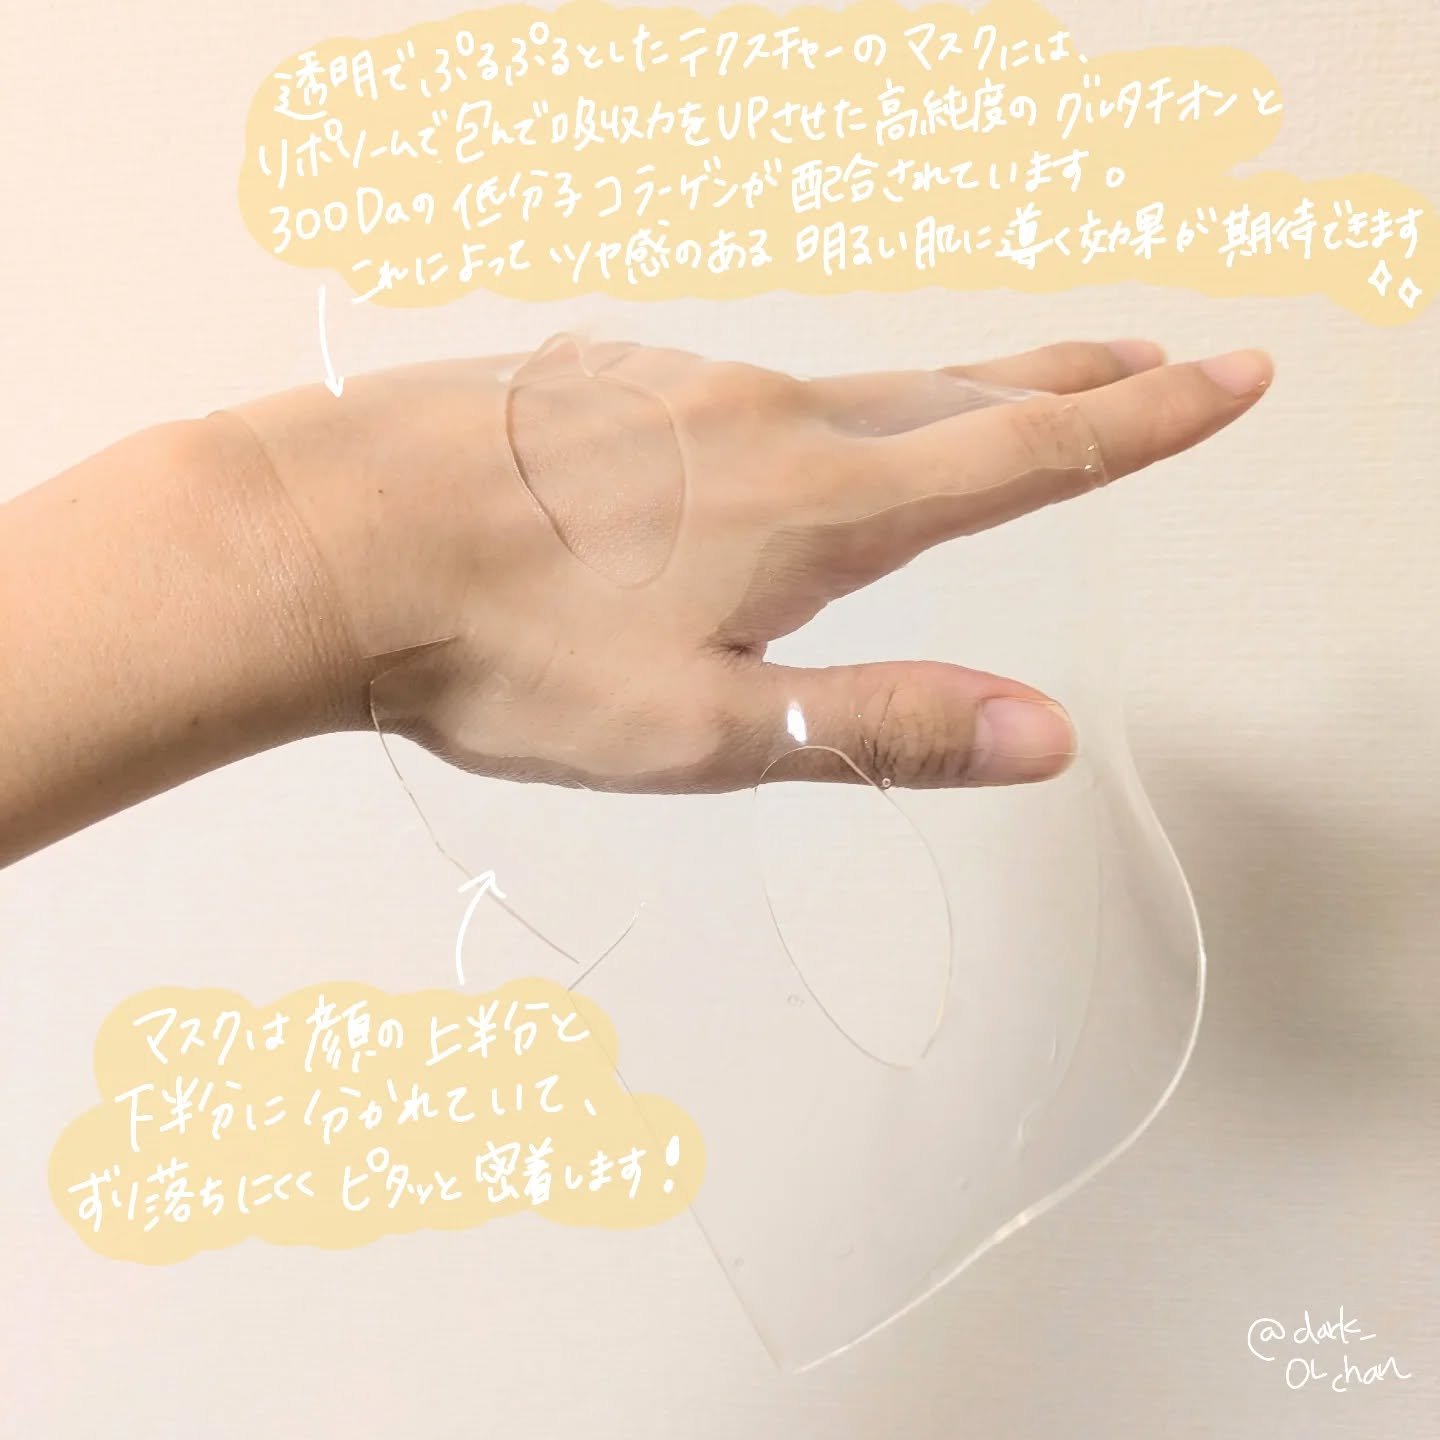 透明でぷるぷるとしたテクスチャーのマスクには、
リポソームで包んで吸収力をUPさせた高純度のグルタチオンと
300Daの低分子コラーゲンが配合されています。
これによってツヤ感のある明るい肌に導く効果が期待できます
マスクは顔の上半分と
下半分に分かれていて、
ずり落ちにくくピタッと密着します!
@dark_
OLchan